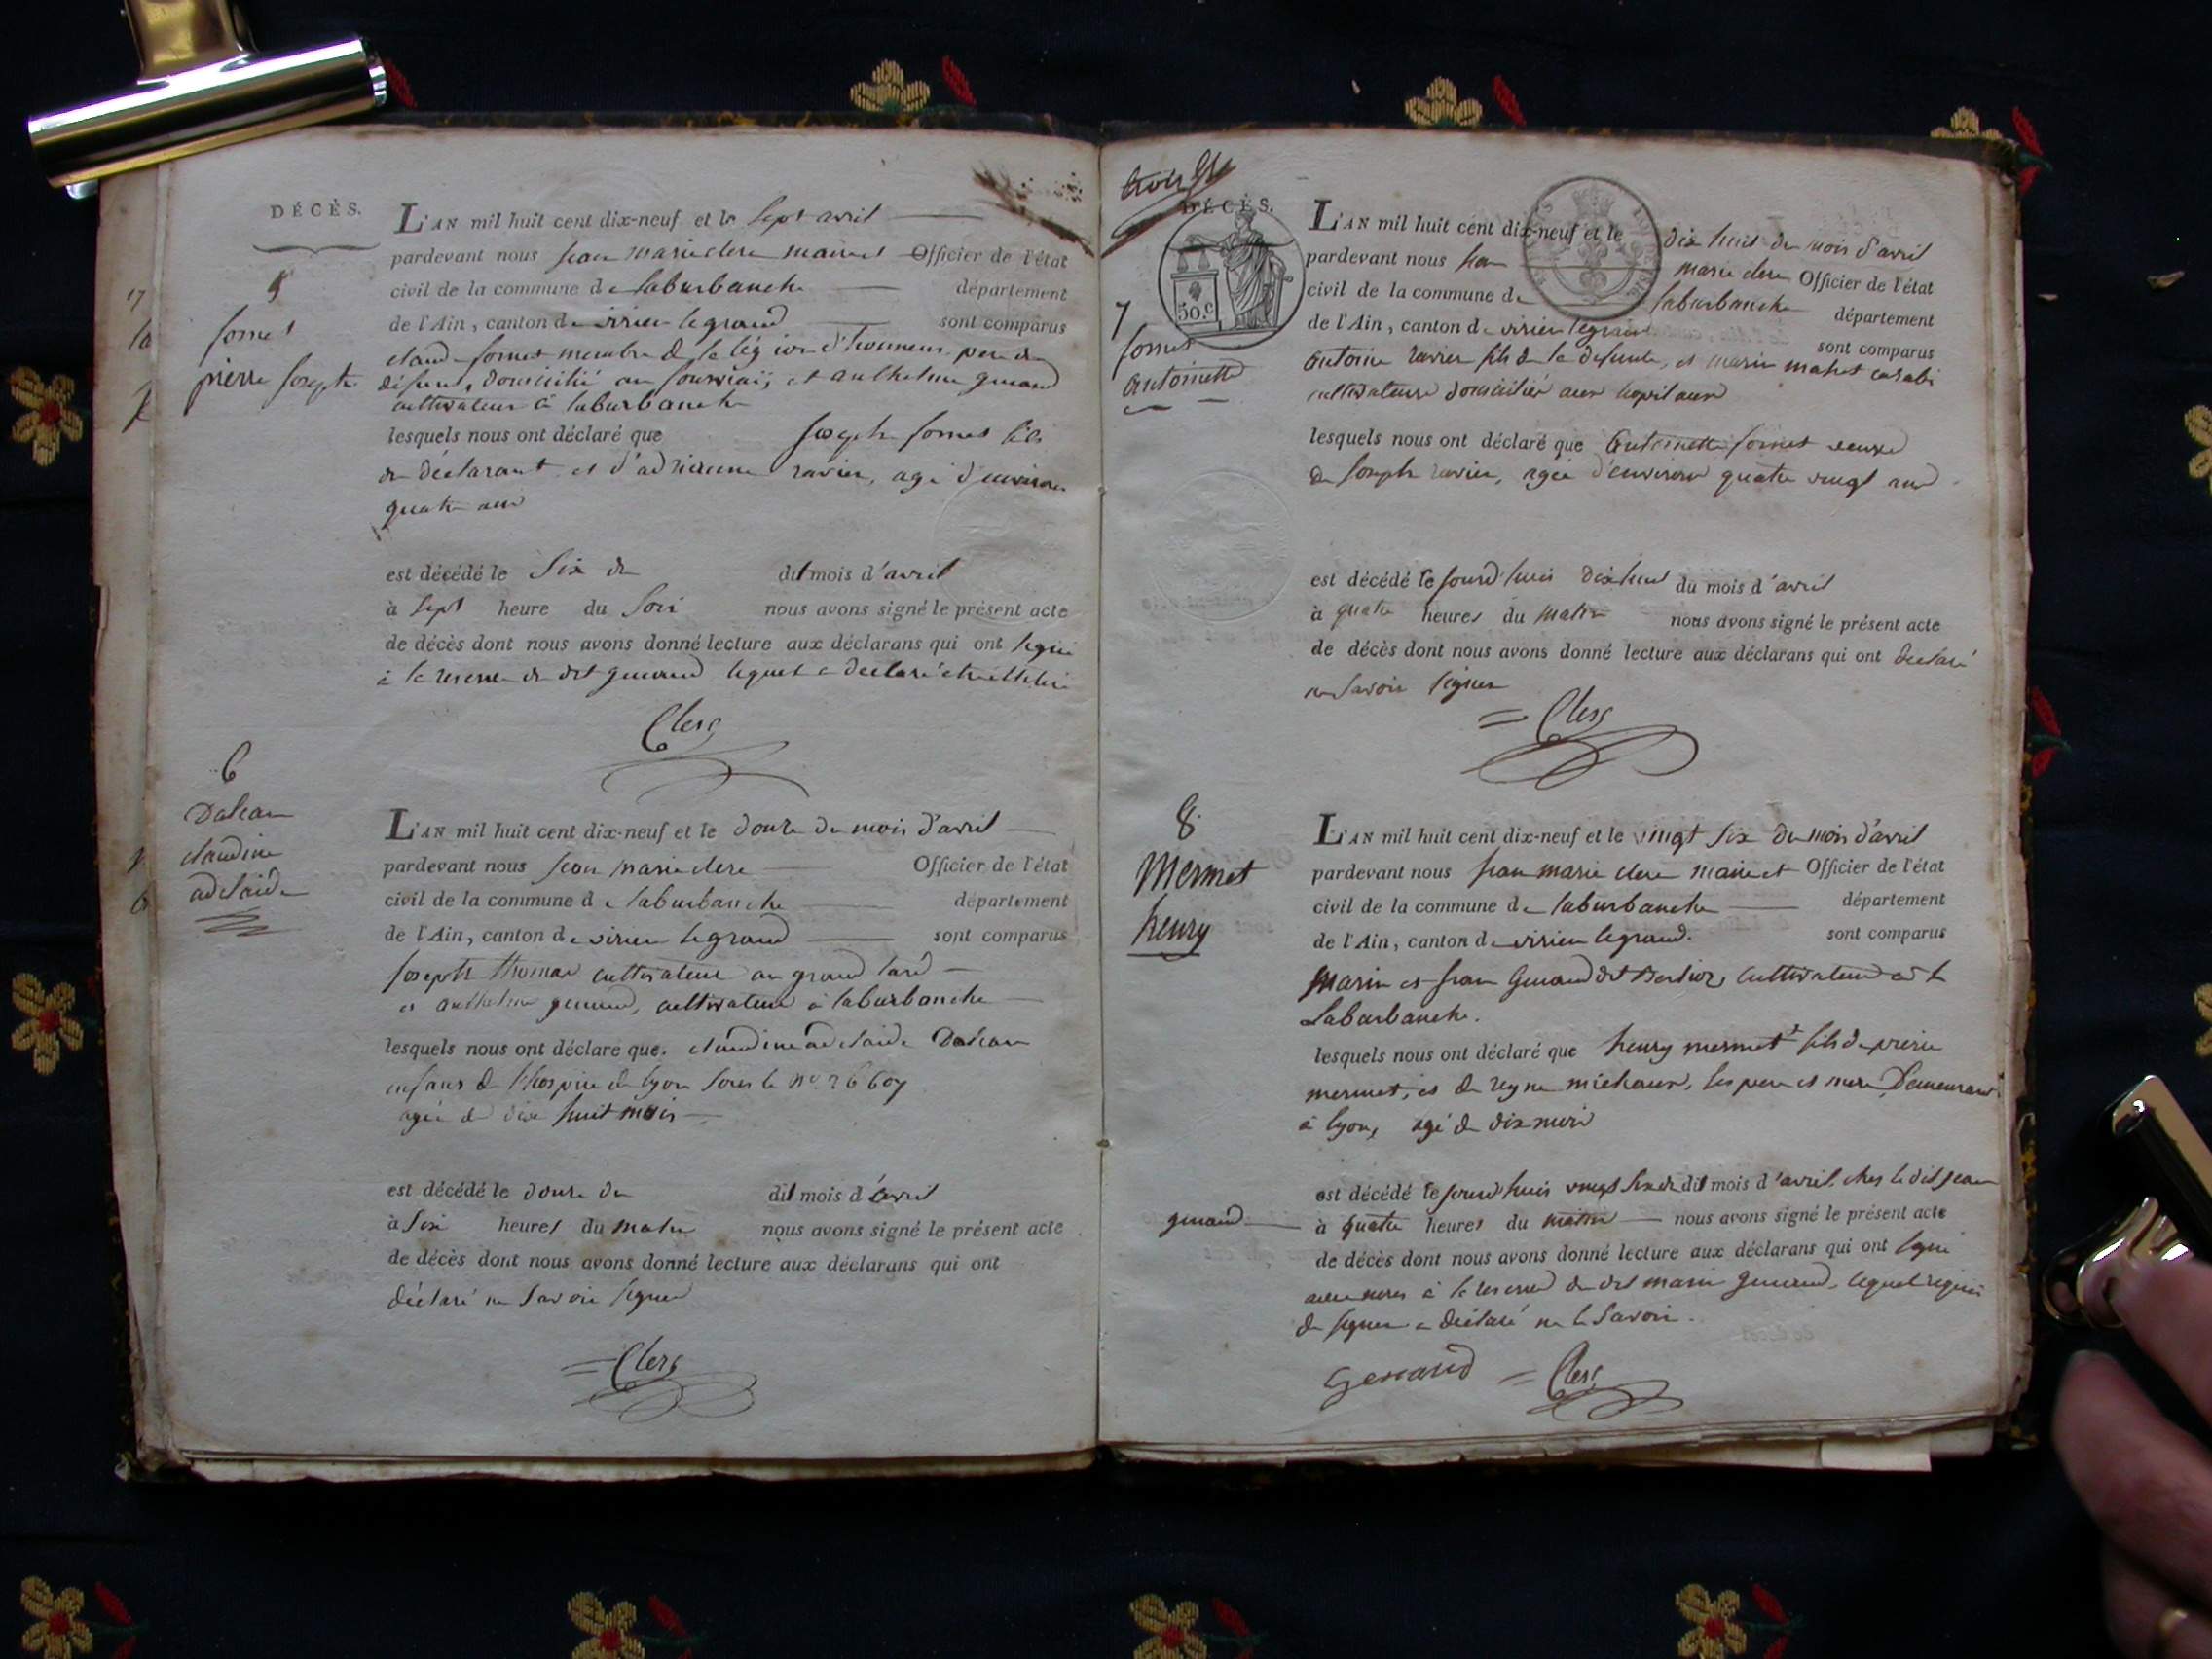 DÉCÈS.
5
fornet
pierre joseph
L'AN mil huit cent dix-neuf et le sept avril
pardevant nous jean marie clerc maire et Officier de l'état
civil de la commune de laburbanche département
de l'Ain, canton de virieu legrand sont comparus
claude fornet membre de la légion d'honneur pere du
défunt, domicilié au et anthelme guinand
cultivateur à laburbanche
lesquels nous ont déclaré que joseph fornet fils
du déclarant et d'adrianne ravier, agé d'environ
quatre ans
est décédé le six du dit mois d'avril
à sept heure du soir nous avons signé le présent acte
de décès dont nous avons donné lecture aux déclarans qui ont signé
à la reserve du dit guinand lequel a déclaré être illitéré
Clerc
6
Daleau
claudine
adelaide
L'AN mil huit cent dix-neuf et le douze du mois d'avril
pardevant nous jean marie clerc Officier de l'état
civil de la commune de laburbanche département
de l'Ain, canton de virieu legrand sont comparus
joseph thomas cultivateur au grand
et anthelme guinand, cultivateur à laburbanche
lesquels nous ont déclaré que. claudine adelaide Daleau
enfans de l'hospice de lyon sous le no. 26607
agée de dix huit mois
est décédé le douze du dit mois d'avril
à six heures du matin nous avons signé le présent acte
de décès dont nous avons donné lecture aux déclarans qui ont
déclaré ne savoir signer
Clerc
DÉCÈS.
50.c
7
fornet
antoinette
L'AN mil huit cent dix-neuf et le dix huit du mois d'avril
pardevant nous jean marie clerc Officier de l'état
civil de la commune de laburbanche département
de l'Ain, canton de virieu legrand sont comparus
antoine ravier fils de la defunte, et marin
cultivateurs domiciliés aux
lesquels nous ont déclaré que antoinette fornet veuve
de joseph ravier, agée d'environ quatre vingt ans
est décédé le jourd'huis dix huit du mois d'avril
à quatre heures du matin nous avons signé le présent acte
de décès dont nous avons donné lecture aux déclarans qui ont déclaré
ne savoir signer
Clerc
8
Mermet
henry
L'AN mil huit cent dix-neuf et le vingt six du mois d'avril
pardevant nous jean marie clerc maire et Officier de l'état
civil de la commune de laburbanche département
de l'Ain, canton de virieu legrand. sont comparus
marin et jean guinand dit cultivateurs
Laburbanche.
lesquels nous ont déclaré que henry mermet fils de pierre
mermet, et de reyne michaux, ses pere et mere Demeurant
à lyon, agé de dix mois
est décédé le jourd'huis vingt six du dit mois d'avril, chez le dit jean
guinand à quatre heures du matin nous avons signé le présent acte
de décès dont nous avons donné lecture aux déclarans qui ont signé
avec nous à la reserve du dit marin guinand, lequel requis
de signer a déclaré ne le savoir.
Clerc